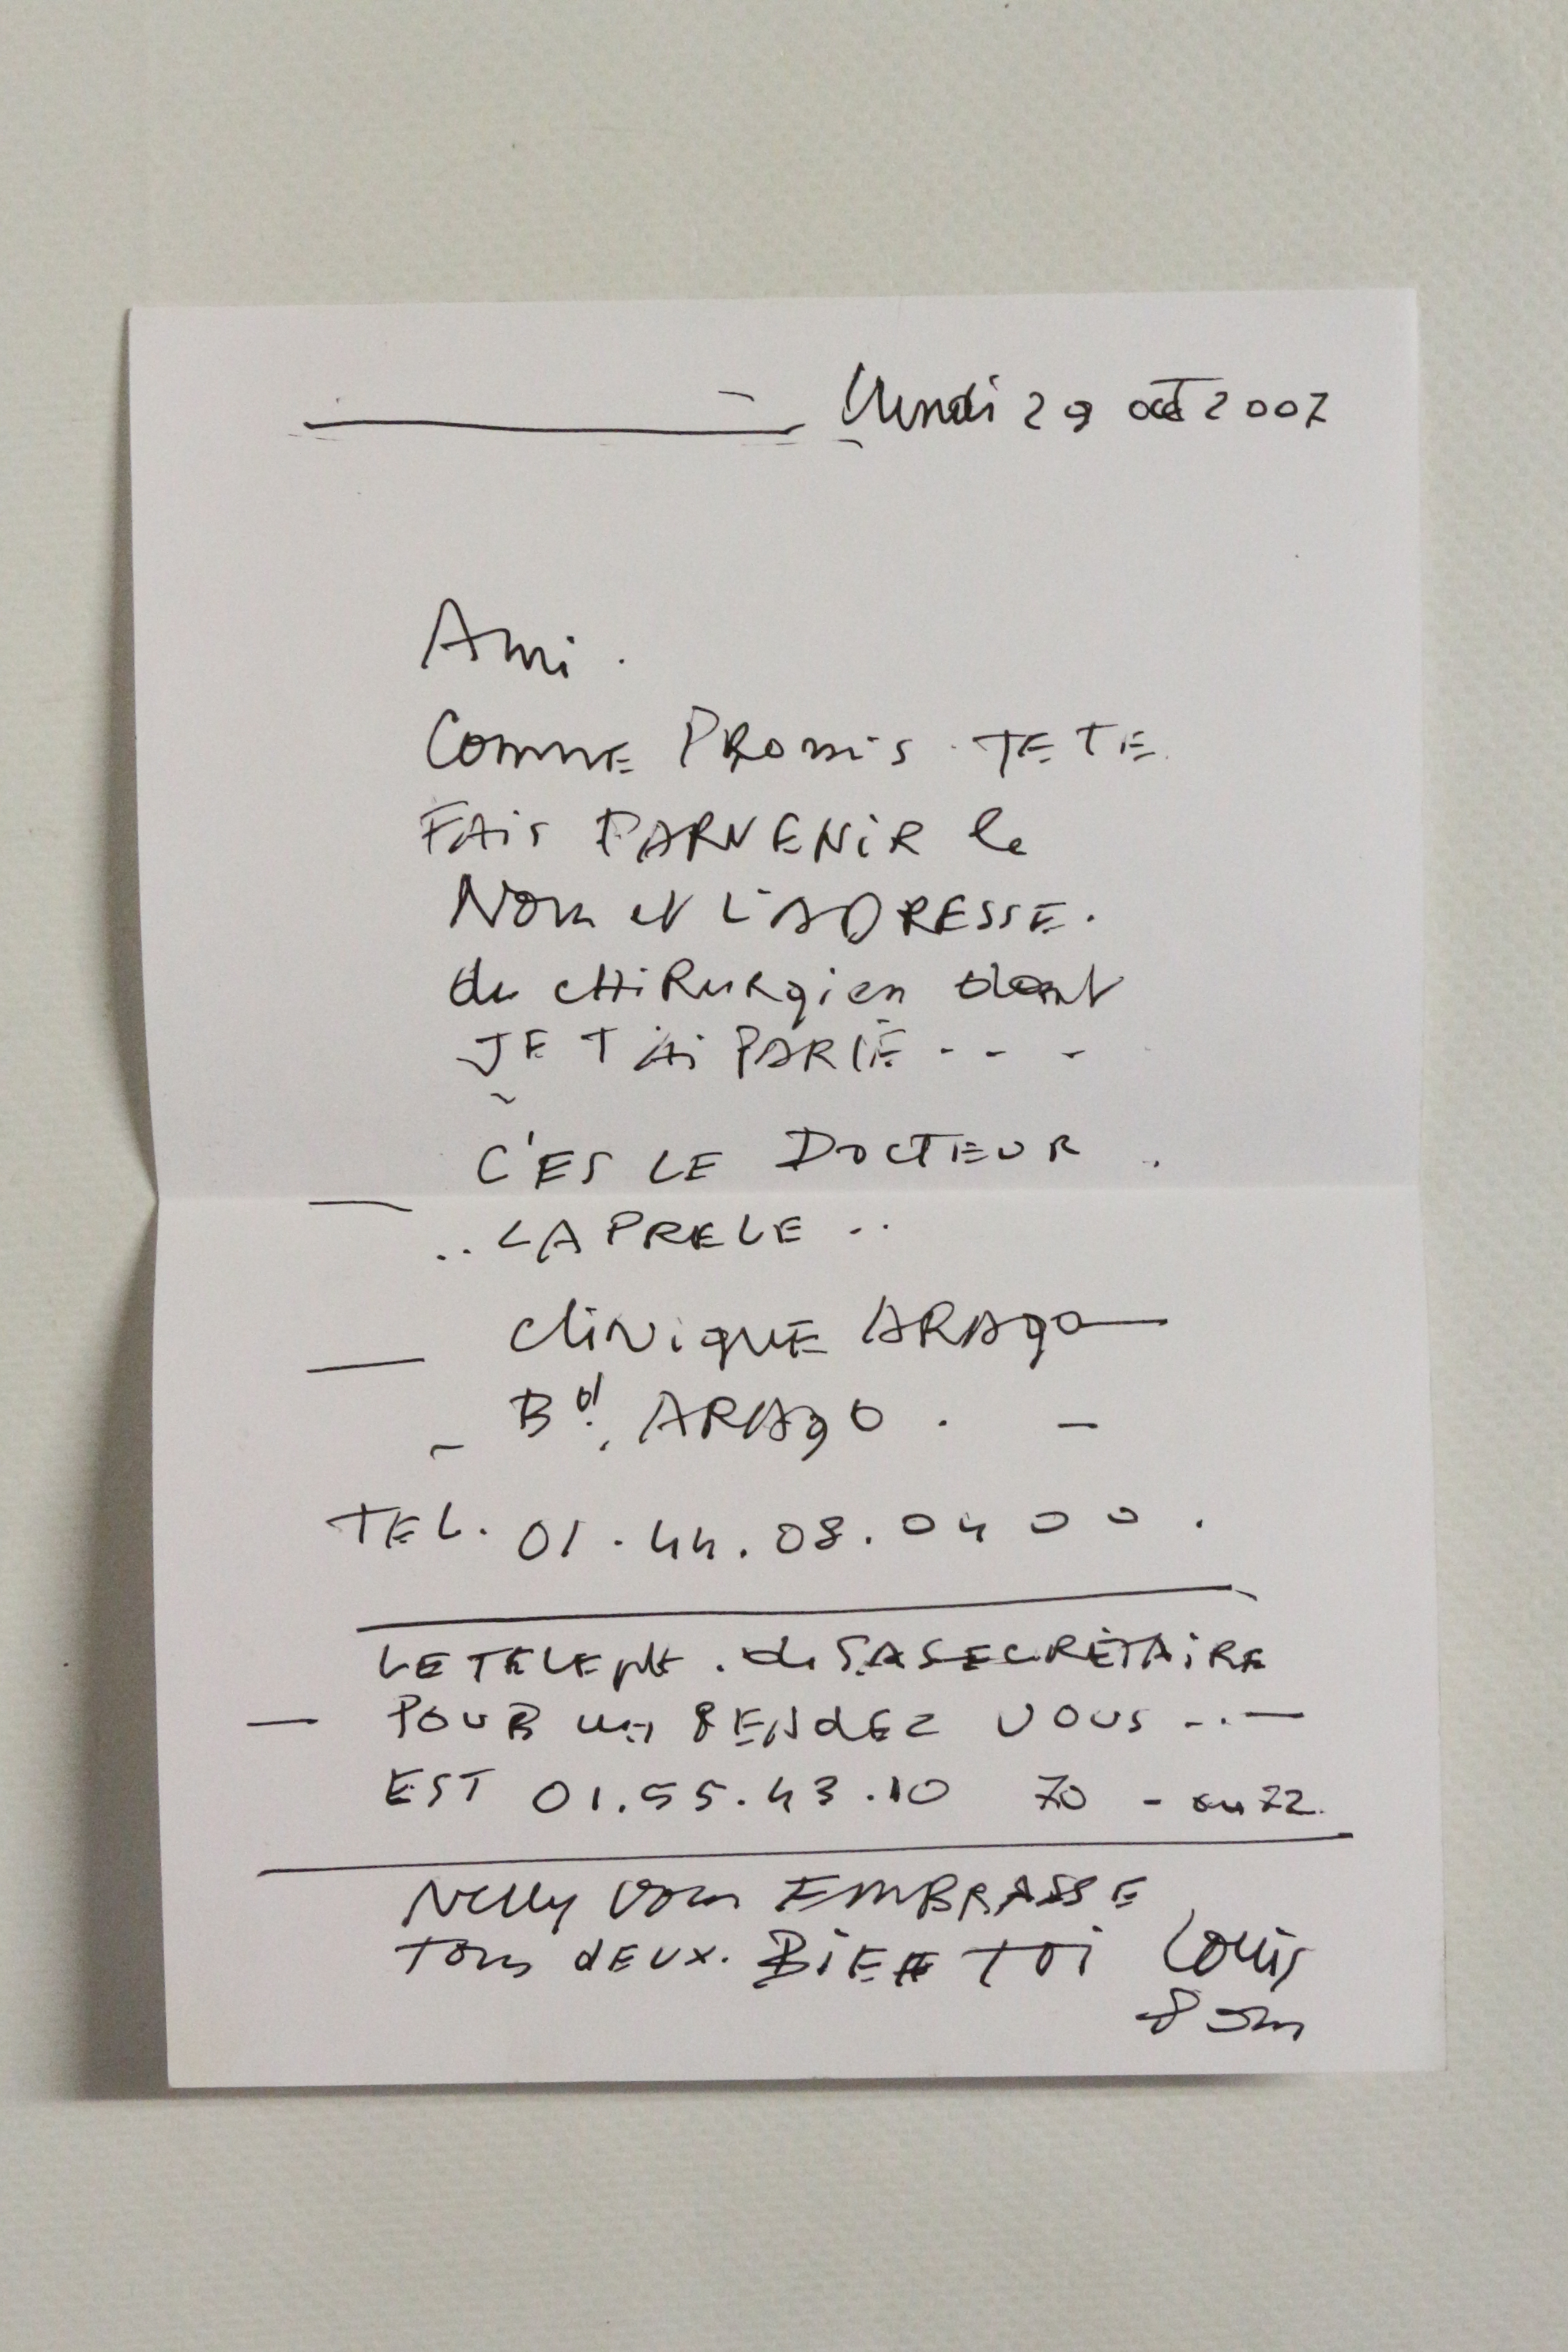 Lundi 29 oct 2007
Ami.
Comme PRomis JE TE
FAis PARVENiR le
Nom et L'ADRESSE.
du cHiRuRgien dont
JE T'Ai PARLÉ - - -
C'ES LE DOCTEUR.
.. LAPRELE ..
cliNiquE ARAgo
Bd. ARAgo. -
TEL. 01.44.08.04 00.
LE TELEpH. de SA SECRÉTAiRE
— POUR un RENdEZ VOUS -.—
EST 01.55.43.10 70 - ou 72.
Nelly vous EMBRASSE
Tous dEUX. BiEN TOi Louis